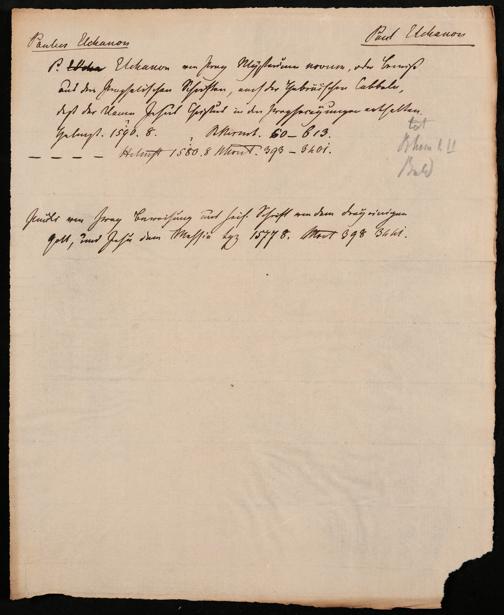 Paulus Elchanon
Paul Elchanon
P. Elchanon von Prag Mysterium novum, oder Beweiß
aus den Prophetischen Schriften, nach der Hebräischen Cabbala,
daß der Namen Jesus Christus in den Propheceyungen enthalten.
Helmst. 1580. 8. 60 – 613.
– – – – Helmst 1580. 8 393 – 3401.
Paulus von Prag Beweisung aus heil. Schrift von dem dreyeinigen
Gott, und Jesu dem Messia 1577 8. 398 3441.